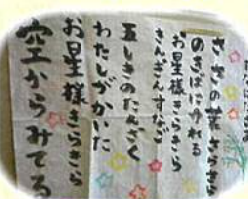 ささの葉さらさら
のきばにゆれる
お星様きらきら
きんぎんすなご
五しきのたんざく
わたしがかいた
お星様きらきら
空からみてる